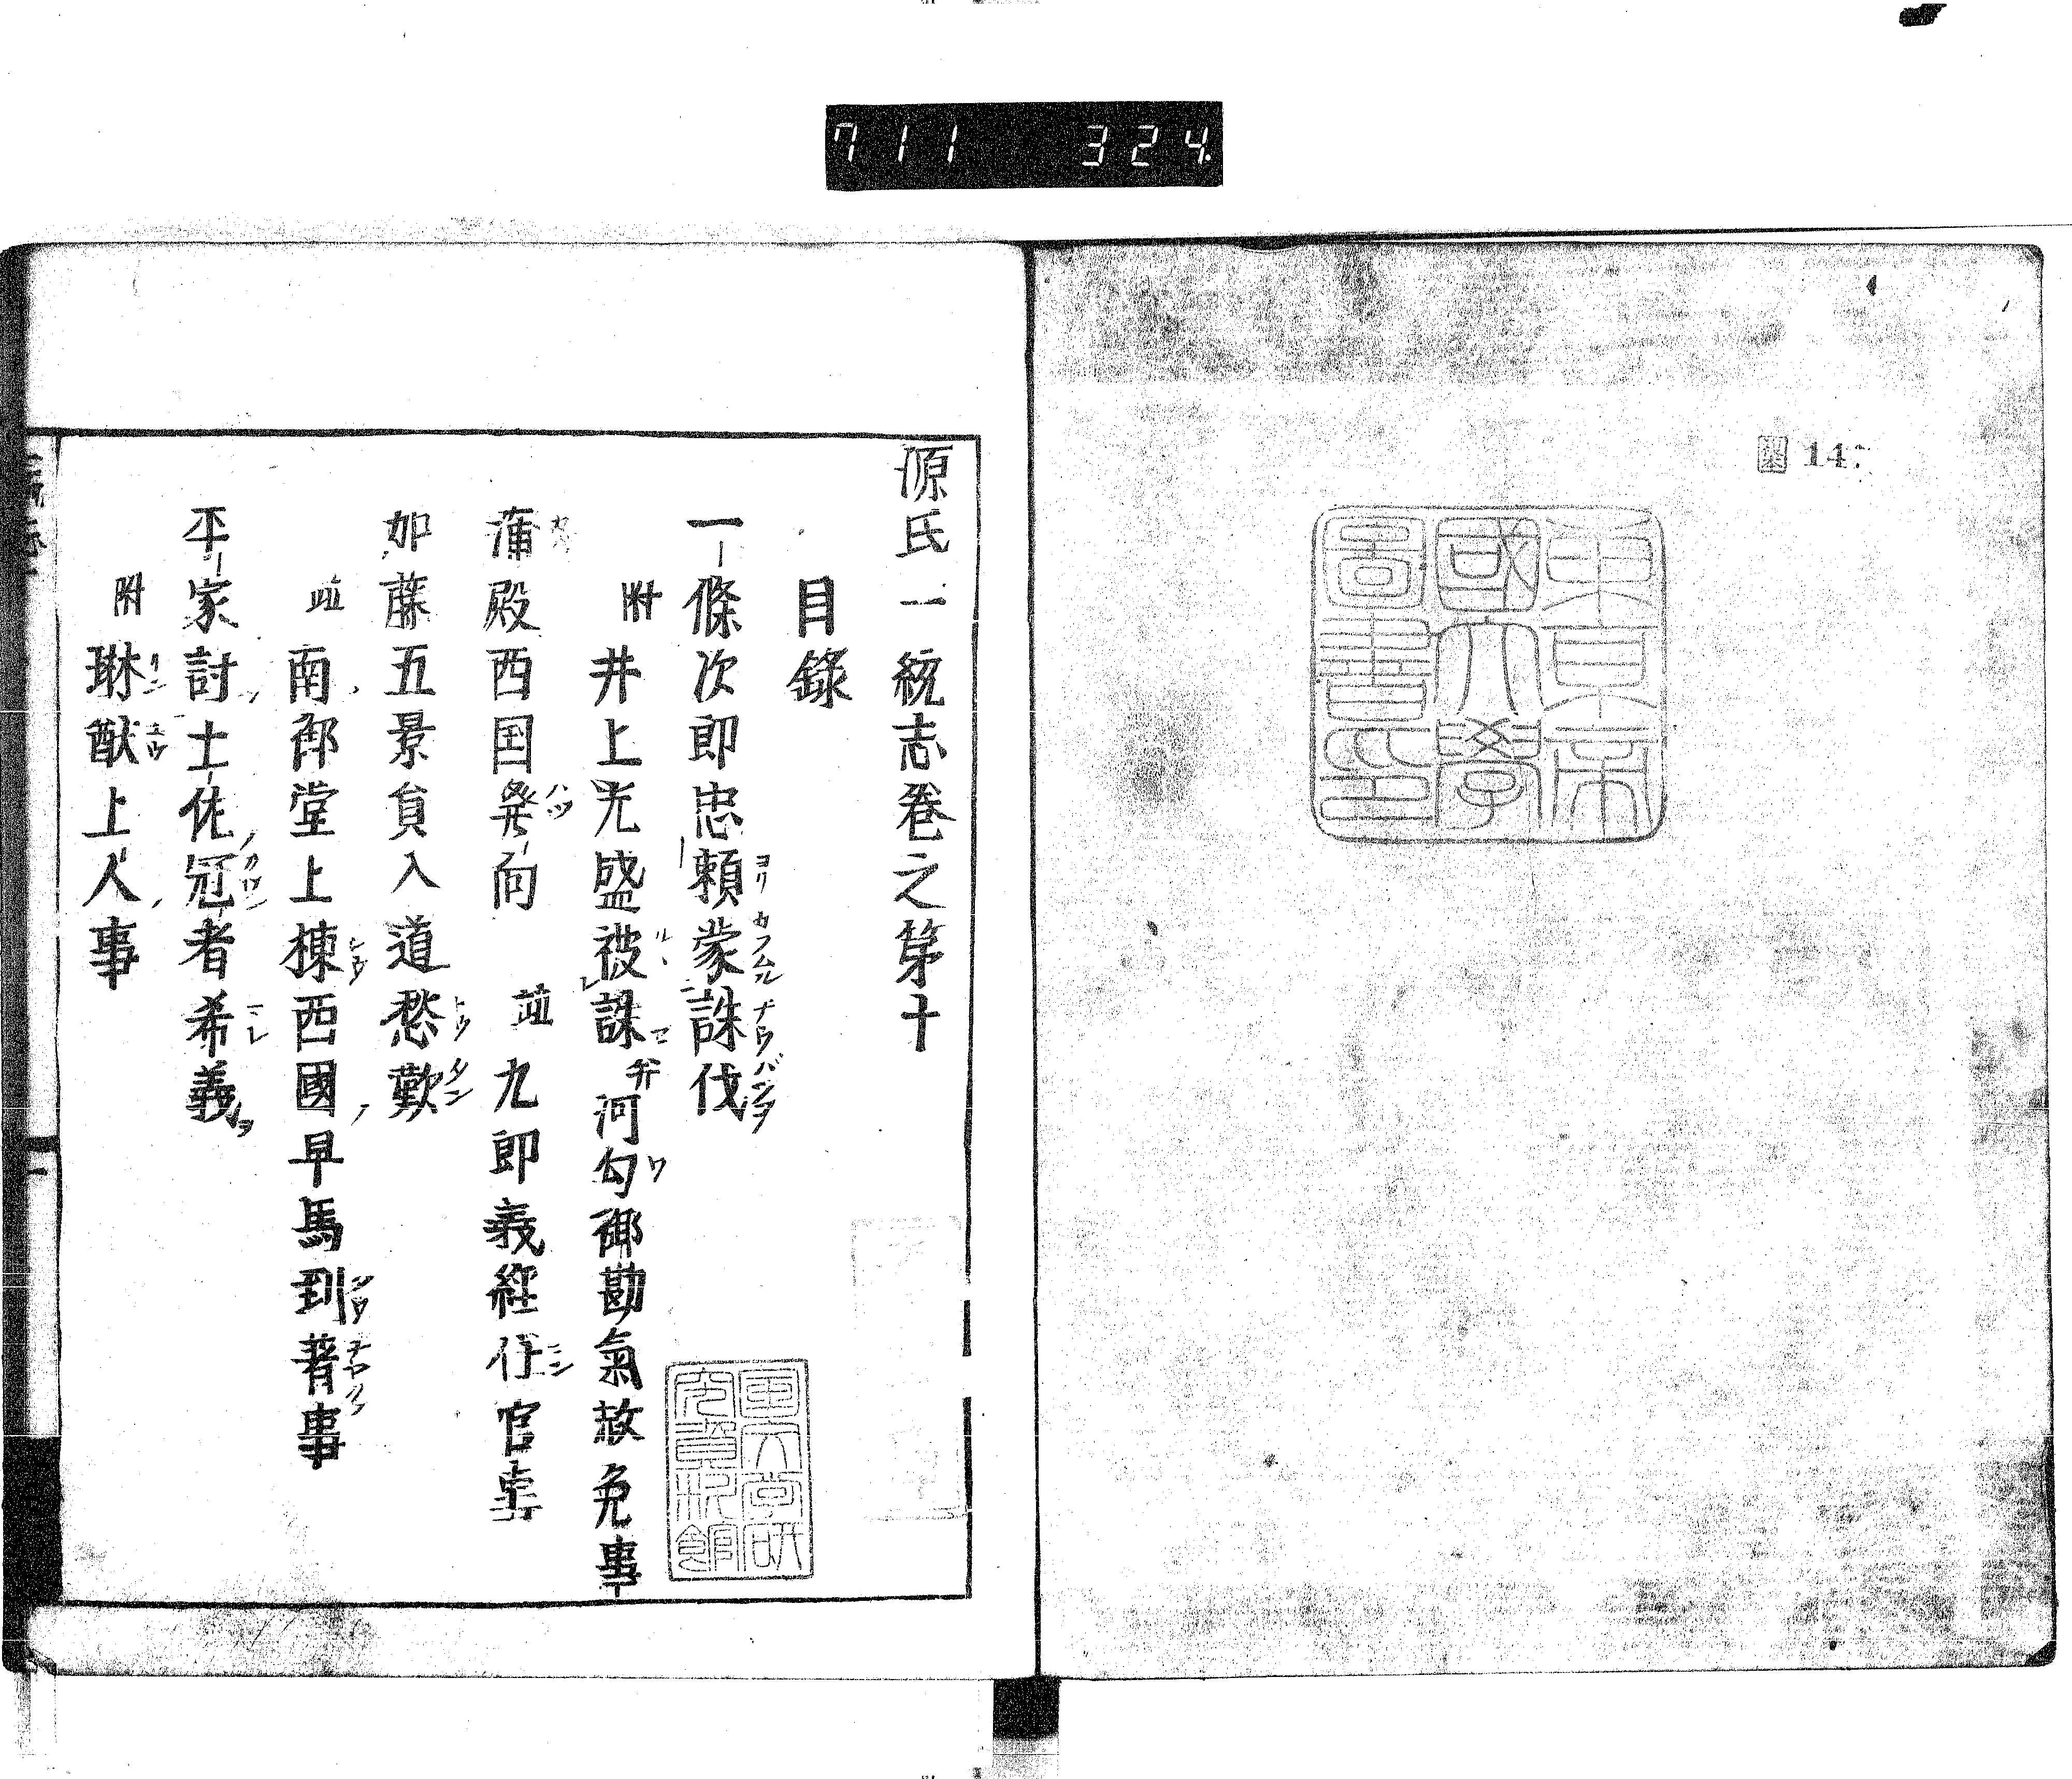 711 324
14
東京帝
國大學
圖書印
源氏一統志卷之第十
目錄
一條次郎忠頼蒙誅伐
附井上光盛被誅并河勾御勘氣放免事
蒲殿西国発向 並九郎義経任官事
加藤五景員入道愁歎
並南御堂上棟西國早馬到著事
平家討土佐冠者希義
附琳猷上人事
国文学研
究資料館